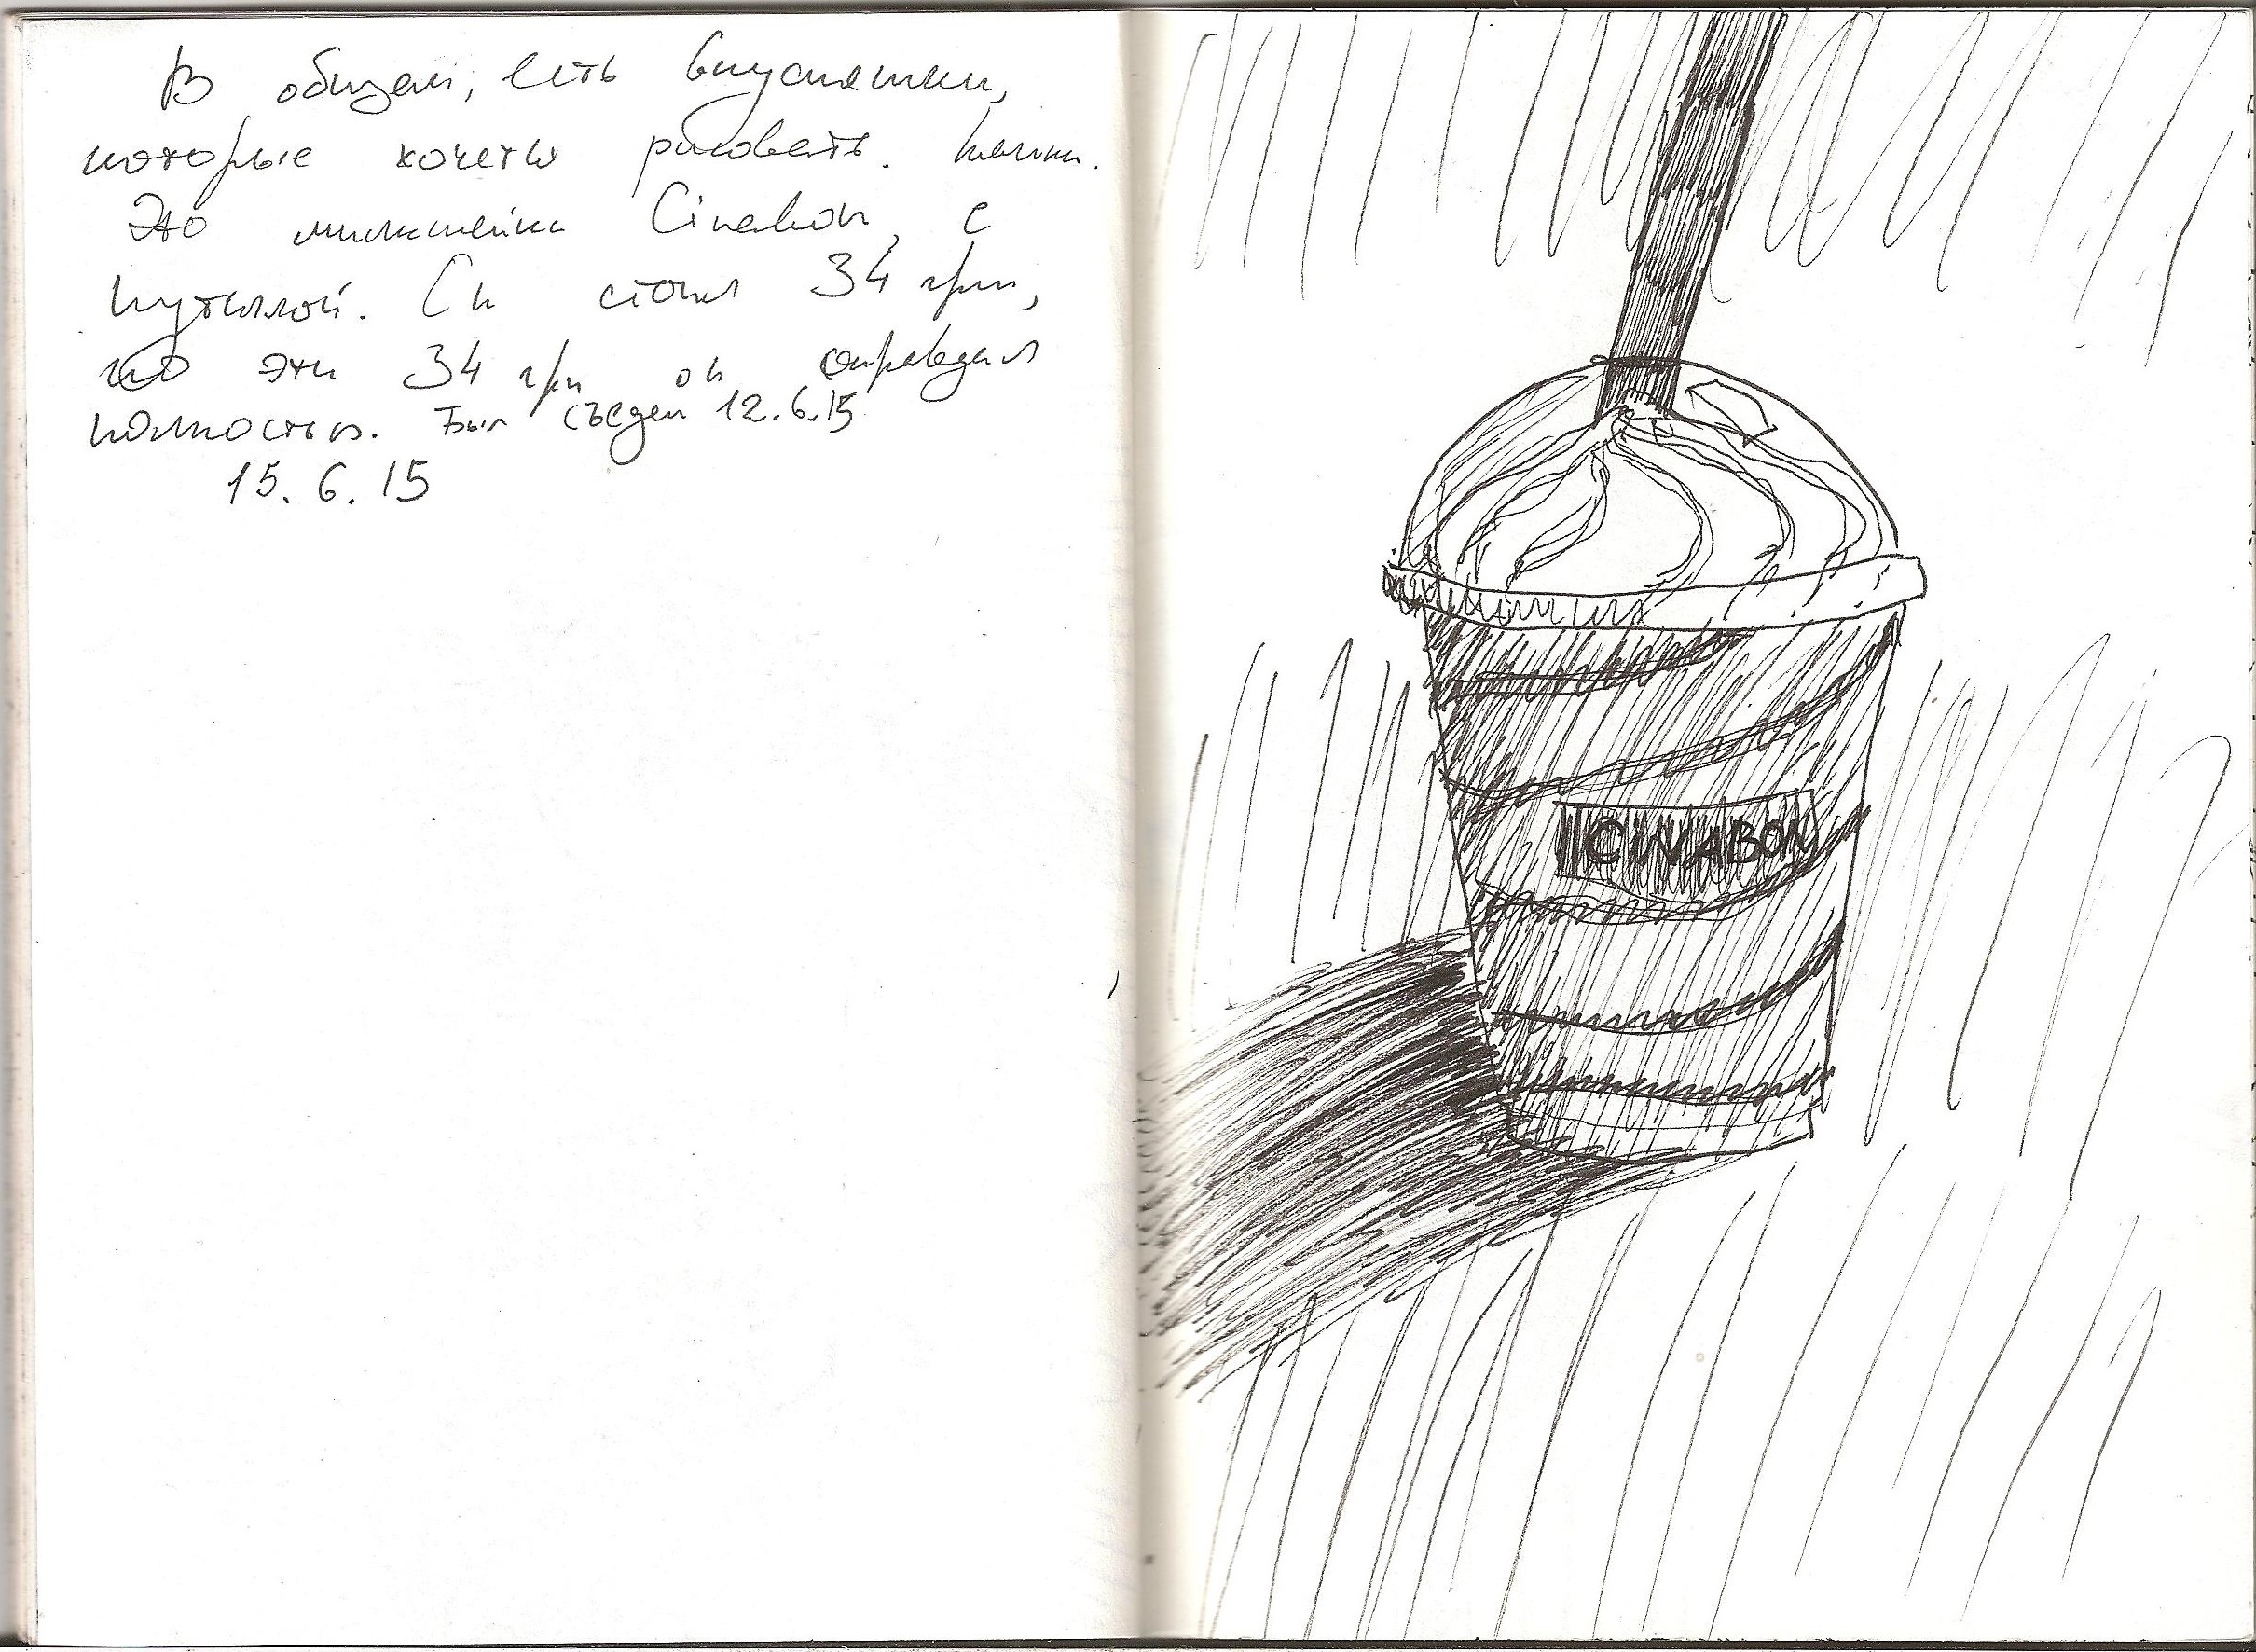 В общем, есть вкусняшки,
которые хочеться рисовать.
Это милкшейк Cinabon, с
Он стоил 34 грн,
но эти 34 грн он оправдал
полностью. Был съеден 12.6.15
15.6.15
CINABON